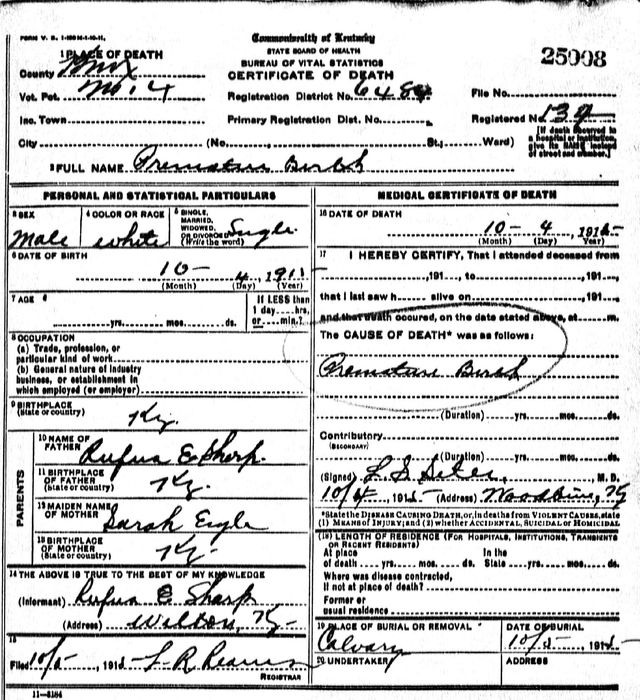 FORM V. S. 1-100M 1-10-11.
Commonwealth of Kentucky
STATE BOARD OF HEALTH
BUREAU OF VITAL STATISTICS
CERTIFICATE OF DEATH
25008
1 PLACE OF DEATH
County Knox
Vot. Pct. No. 4
Inc. Town
City (No. St.; Ward)
Registration District No. 6484
Primary Registration Dist. No.
File No.
Registered No.
[If death occurred in a hospital or institution, give its NAME instead of street and number.]
2 FULL NAME Premature Birth
PERSONAL AND STATISTICAL PARTICULARS
3 SEX
Male
4 COLOR OR RACE
white
5 SINGLE, MARRIED, WIDOWED, OR DIVORCED (Write the word)
Single
6 DATE OF BIRTH
10 - 4, 1911
(Month) (Day) (Year)
7 AGE
yrs. mos. ds.
If LESS than 1 day hrs. or min.?
8 OCCUPATION
(a) Trade, profession, or
particular kind of work
(b) General nature of industry
business, or establishment in
which employed (or employer)
9 BIRTHPLACE
(State or country)
Ky.
PARENTS
10 NAME OF FATHER
Rufus E Sharp.
11 BIRTHPLACE OF FATHER
(State or country)
Ky.
12 MAIDEN NAME OF MOTHER
Sarah Engle
13 BIRTHPLACE OF MOTHER
(State or country)
Ky.
14 THE ABOVE IS TRUE TO THE BEST OF MY KNOWLEDGE
(Informant) Rufus E Sharp
(Address) Wilton, Ky.
15
Filed 10/5, 191 L R
REGISTRAR
11-3184
MEDICAL CERTIFICATE OF DEATH
16 DATE OF DEATH
10 - 4, 191
(Month) (Day) (Year)
17 I HEREBY CERTIFY, That I attended deceased from
, 191 , to , 191 ,
that I last saw h alive on , 191 ,
and that death occured, on the date stated above, at m.
The CAUSE OF DEATH* was as follows:
Premature Birth
(Duration) yrs. mos. ds.
Contributory
(SECONDARY)
(Duration) yrs. mos. ds.
(Signed) , M. D.
10/4, 191 (Address) Woodbine, Ky
*State the DISEASE CAUSING DEATH, or, in deaths from VIOLENT CAUSES, state
(1) MEANS OF INJURY; and (2) whether ACCIDENTAL, SUICIDAL or HOMICIDAL
(18) LENGTH OF RESIDENCE (FOR HOSPITALS, INSTITUTIONS, TRANSIENTS OR RECENT RESIDENTS)
At place of death yrs. mos. ds. In the State yrs. mos. ds.
Where was disease contracted,
If not at place of death?
Former or
usual residence
19 PLACE OF BURIAL OR REMOVAL
Calvary
DATE OF BURIAL
10/5, 191
20 UNDERTAKER
ADDRESS